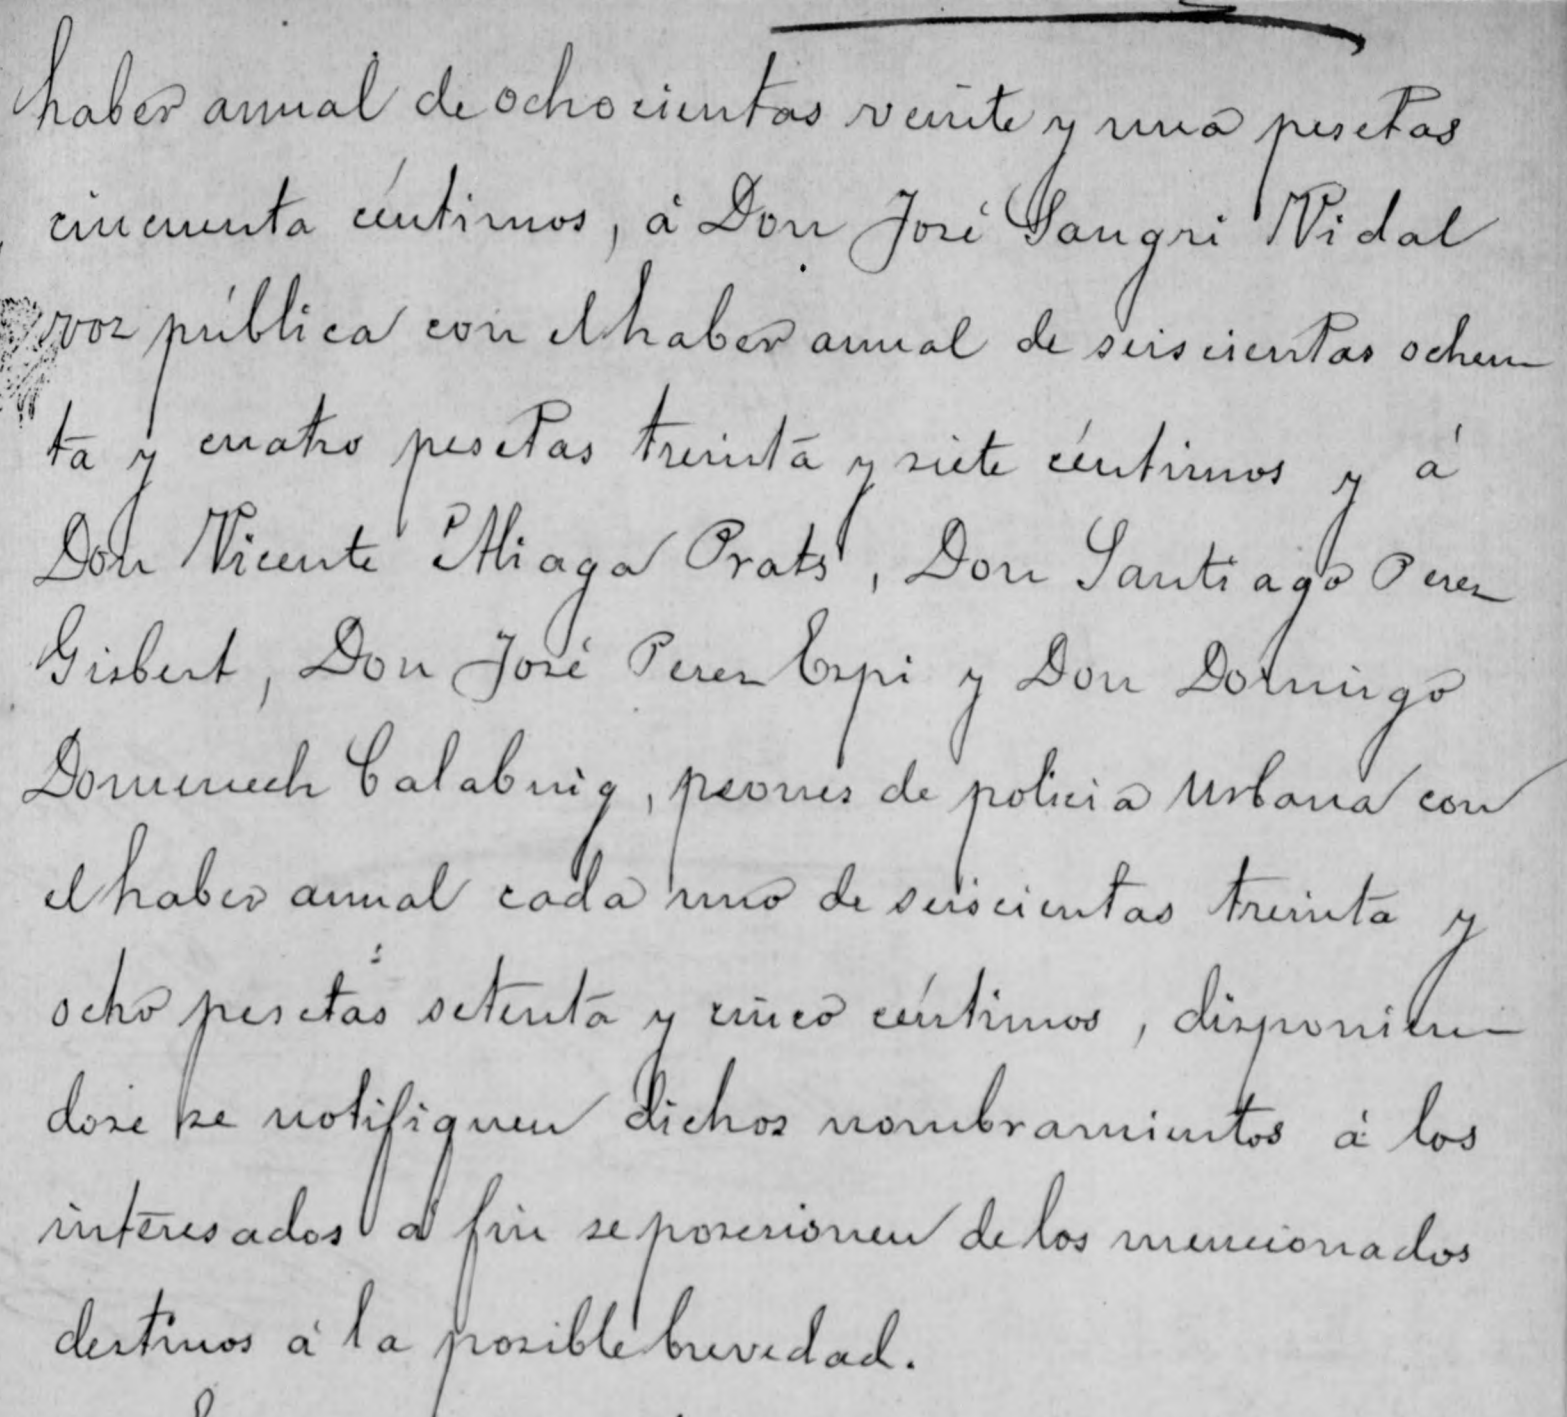 haber anual de ochocientas veinte y una pesetas
cincuenta céntimos, á Don José Sangri Vidal
voz pública con el haber anual de seiscientas ochen-
ta y cuatro pesetas treinta y siete céntimos y á
Don Vicente Aliaga Prats, Don Santiago Perez
Gisbert, Don José Perez Espi y Don Domingo
Domenech Calabuig, peones de policia Urbana con
el haber anual cada uno de seiscientas treinta y
ocho pesetas setenta y cinco céntimos, disponien-
dose se notifiquen dichos nombramientos á los
interesados á fin se posesionen de los mencionados
destinos á la posible brevedad.